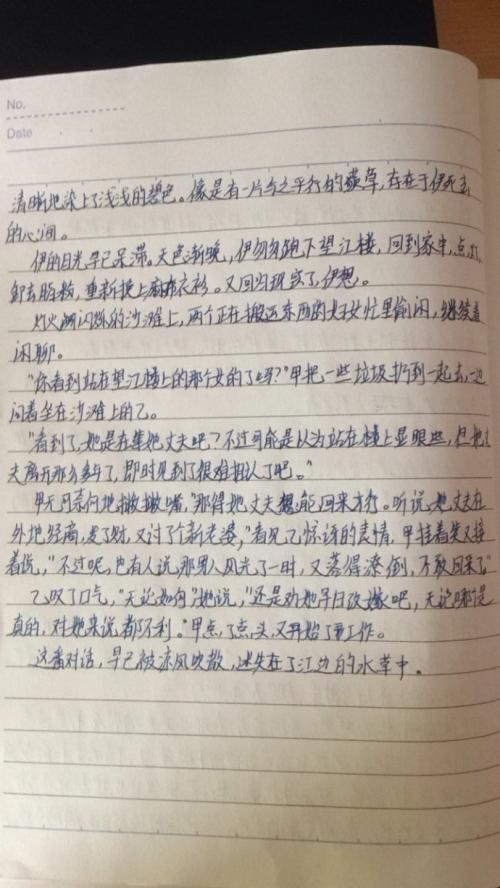 No.
Date
清晰地染上了浅浅的碧色。像是有一片与之平行的蘋草,存在于伊死去
的心间。
伊的目光早已呆滞。天色渐晚,伊匆匆跑下望江楼,回到家中,点灯,
卸去脂粉,重新换上麻布衣衫。又回归现实了,伊想。
灯火闪烁的沙滩上,两个正在搬运东西的妇女忙里偷闲,继续着
闲聊。
"你看到站在望江楼上的那个女的了吗?"甲把一些垃圾扔到一起去,一边
问着坐在沙滩上的乙。
"看到了,她是在等她丈夫吧?不过可能是以为站在楼上显眼些,但她丈
夫离开那么多年了,即时见到了很难相认了吧。"
甲无可奈何地撇撇嘴,"那得她丈夫想,能回来才行。听说,她丈夫在
外地经商,发了财,又讨了个新老婆,"看见乙惊讶的表情,甲挂着笑又接
着说,"不过呢,也有人说,那男人风光了一时,又落得潦倒,不敢回来了"
乙叹了口气,"无论如何,"她说,"还是劝她早日改嫁吧,无论哪个是
真的,对她来说都不利。"甲点了点头,又开始了工作。
这番对话,早已被凉风吹散,迷失在了江边的水草中。